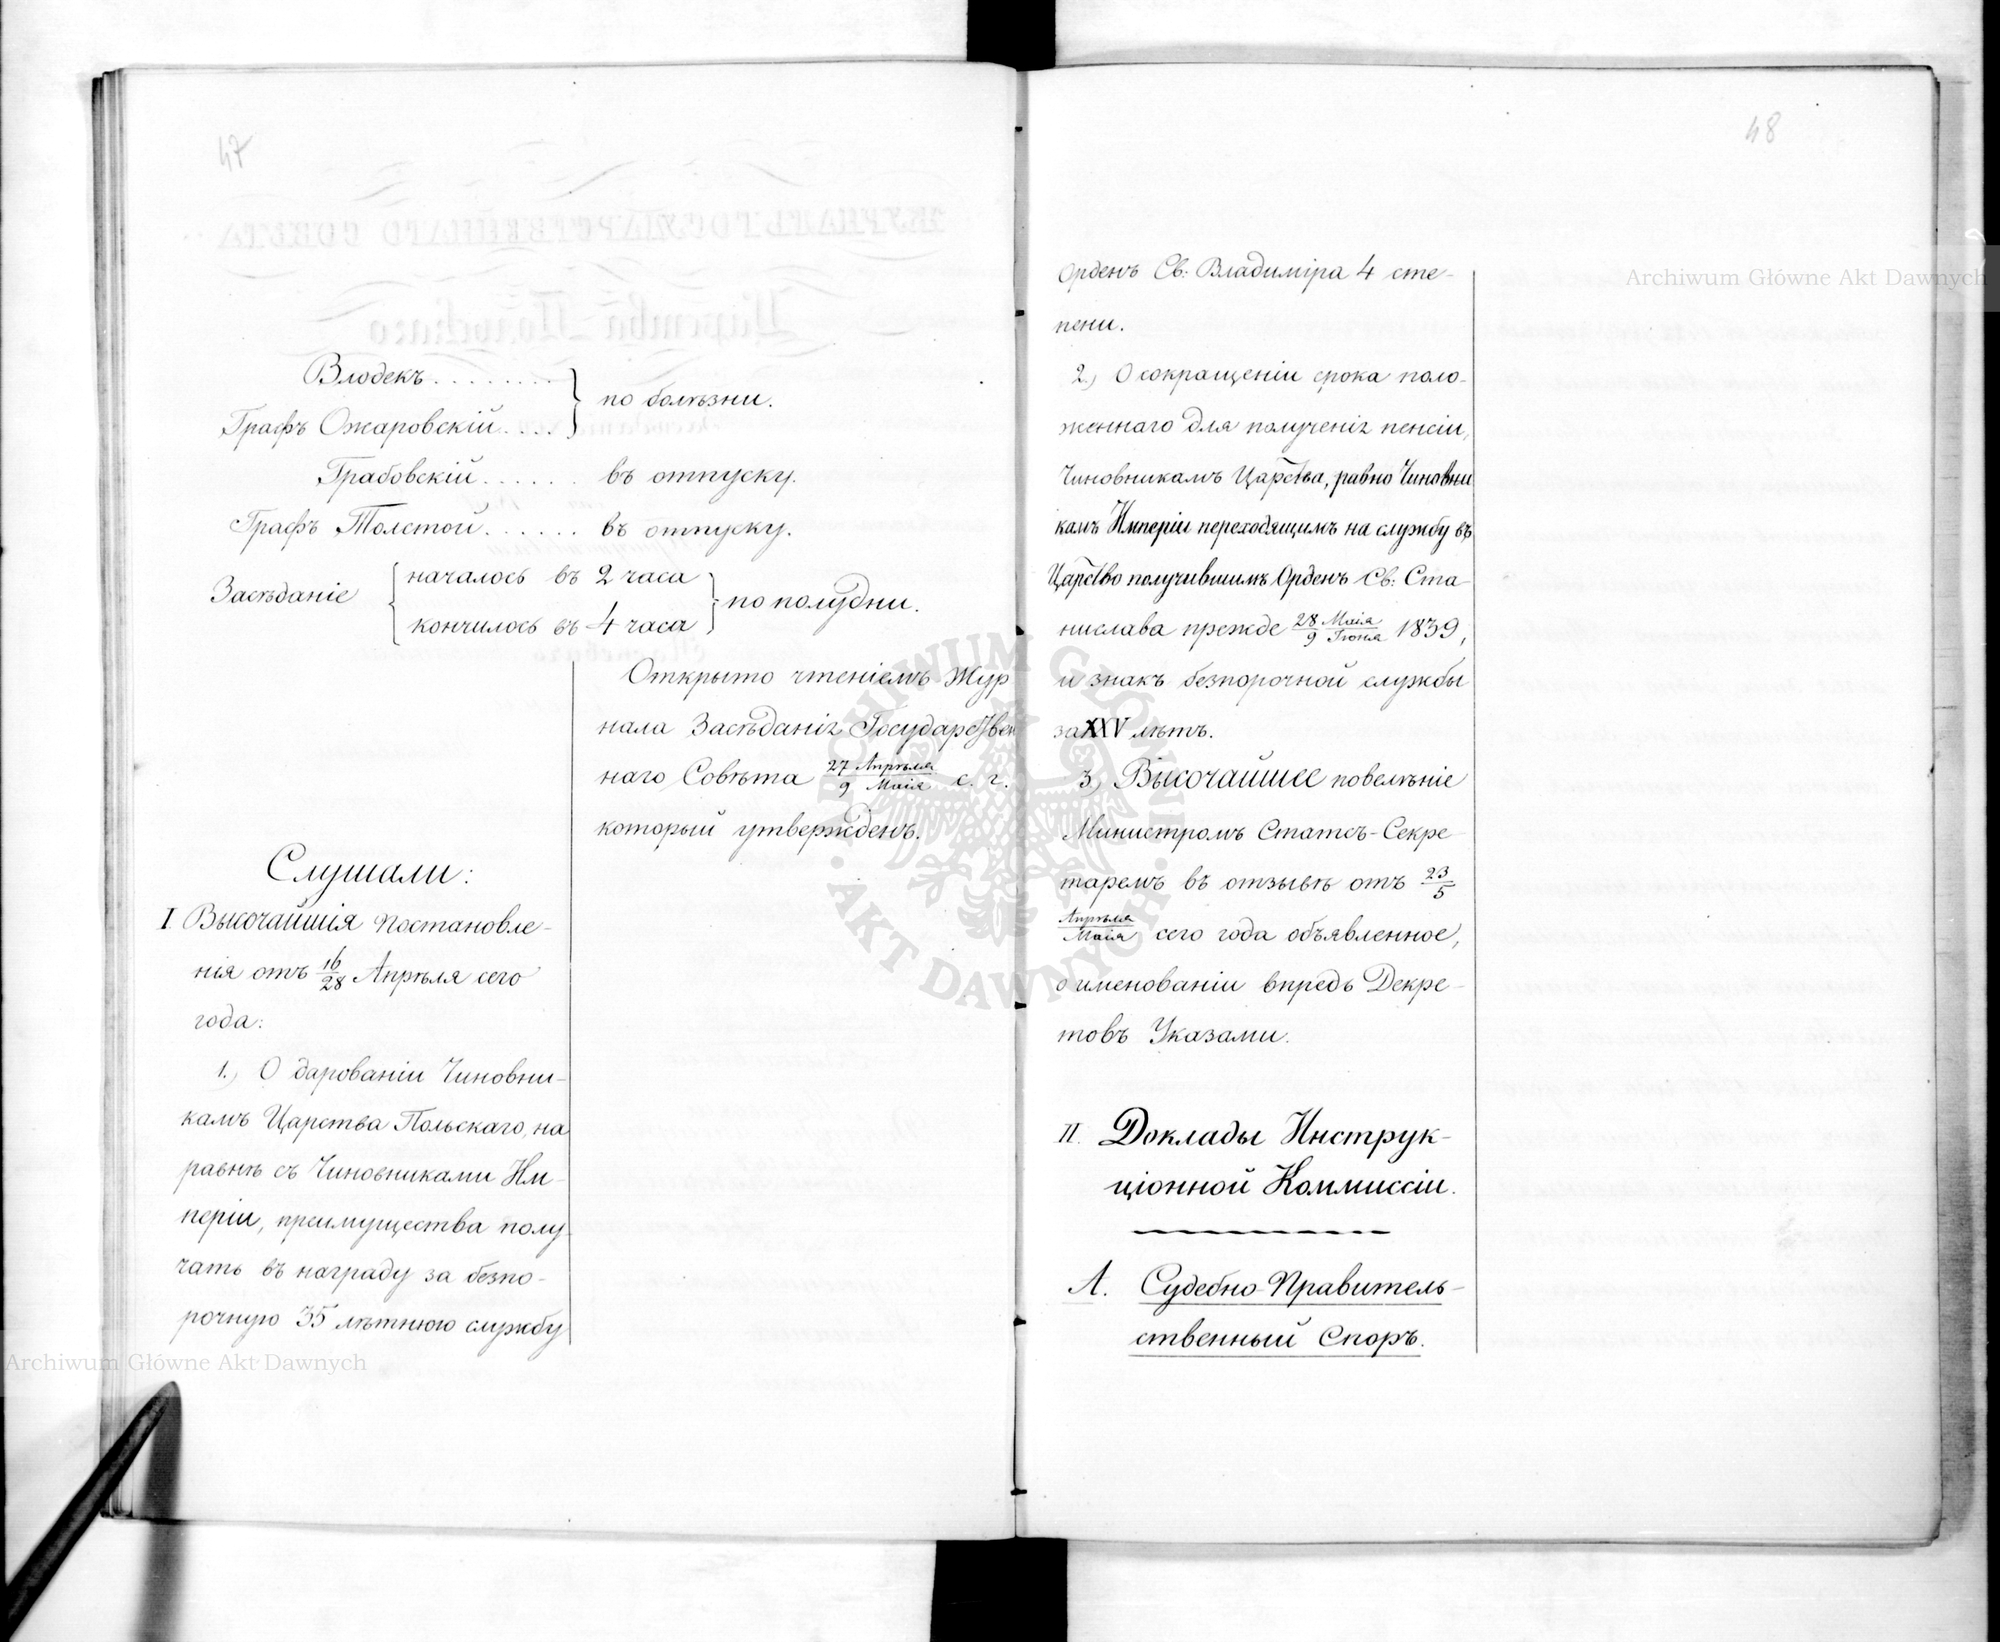 47
Влодекъ . . . . . . . .
Графъ Ожаровскій. . . .
по болѣзни.
Грабовскій. . . . . . въ отпуску.
Графъ Толстой. . . . . . въ отпуску.
Засѣданіе
началось въ 2 часа
кончилось въ 4 часа
по полудни.
Открыто чтеніемъ Жур
нала Засѣданія Государствен
наго Совѣта 27 Апрѣля / 9 Маія с. г.
который утвержденъ.
Слушали:
I. Высочайшія постановле-
нія отъ 16/28 Апрѣля сего
года:
1., О дарованіи Чиновни-
камъ Царства Польскаго, на
равнѣ съ Чиновниками Им-
періи, преимущества полу
чать въ награду за безпо-
рочную 35 лѣтнюю службу
48
Орденъ Св: Владиміра 4 сте-
пени.
2., О сокращеніи срока поло-
женнаго для полученія пенсіи,
Чиновникамъ Царства, равно Чиновни
камъ Имперіи переходящимъ на службу въ
Царство получившимъ Орденъ Св: Ста-
нислава прежде 28 Маія / 9 Іюня 1839,
и знакъ безпорочной службы
за XXV лѣтъ.
3., Высочайшее повелѣніе
Министромъ Статсъ-Секре
таремъ въ отзывѣ отъ 23/5
Апрѣля / Маія сего года объявленное,
о именованіи впредь Декре-
товъ Указами.
II. Доклады Инструк-
ціонной Коммиссіи.
А. Судебно-Правитель-
ственный Споръ.
Archiwum Główne Akt Dawnych
Archiwum Główne Akt Dawnych
ARCHIWUM GŁÓWNE
AKT DAWNYCH